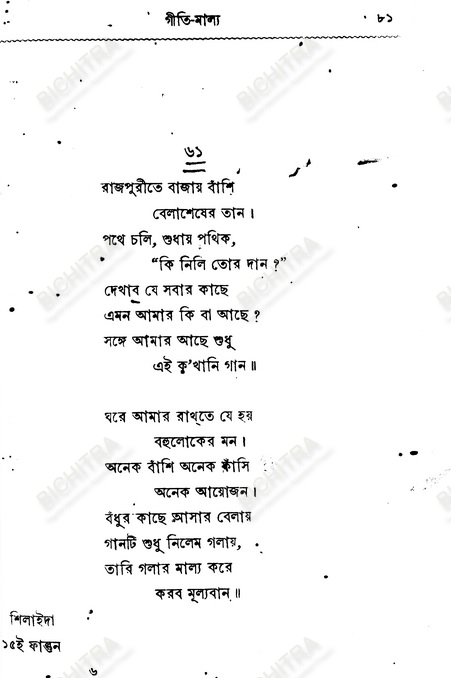 গীতি-মাল্য ৮১
৬১
রাজপুরীতে বাজায় বাঁশি
বেলাশেষের তান।
পথে চলি, শুধায় পথিক,
“কি নিলি তোর দান?”
দেখাব যে সবার কাছে
এমন আমার কি বা আছে?
সঙ্গে আমার আছে শুধু
এই ক’খানি গান॥
ঘরে আমার রাখ্‌তে যে হয়
বহুলোকের মন।
অনেক বাঁশি অনেক কাঁসি
অনেক আয়োজন।
বঁধুর কাছে আসার বেলায়
গানটি শুধু নিলেম গলায়,
তারি গলার মাল্য করে
করব মূল্যবান॥
শিলাইদা
১৫ই ফাল্গুন
৬
BICHITRA
BICHITRA
BICHITRA
BICHITRA
BICHITRA
BICHITRA
BICHITRA
BICHITRA